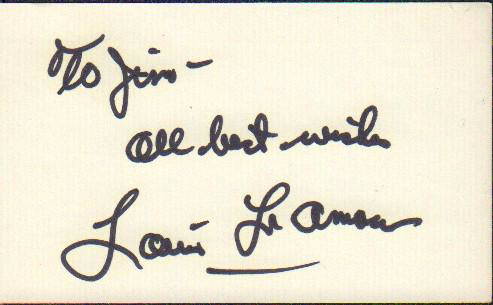 To Jim -
All best wishes
Louis L'Amour